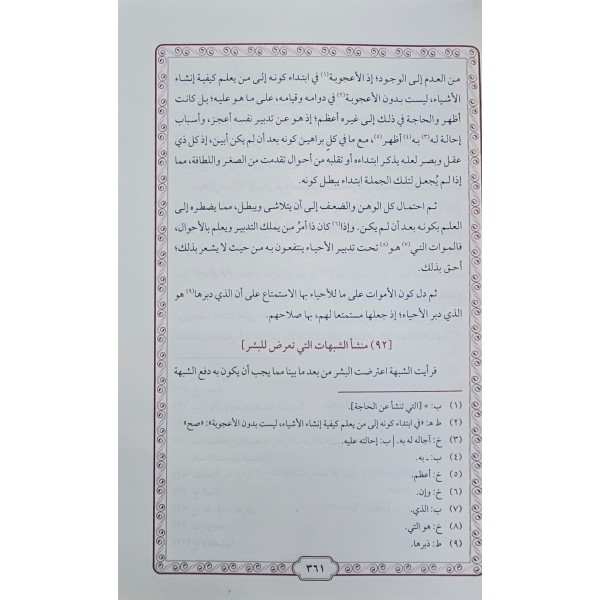 من العدم إلى الوجود؛ إذ الأعجوبة(١) في ابتداء كونه إلى من يعلم كيفية إنشاء
الأشياء، ليست بدون الأعجوبة(٢) في دوامه وقيامه، على ما هو عليه؛ بل كانت
أظهر والحاجة في ذلك إلى غيره أعظم؛ إذ هو عن تدبير نفسه أعجز، وأسباب
إحالة له(٣) به(٤) أظهر(٥)، مع ما في كلٍ براهين كونه بعد أن لم يكن أبين، إذ كل ذي
عقل وبصر لعله يذكر ابتداءه أو تقلبه من أحوال تقدمت من الصغر واللطافة، مما
إذا لم يُجعل لتلك الجملة ابتداء يبطل كونه.
ثم احتمال كل الوهن والضعف إلى أن يتلاشى ويبطل، مما يضطره إلى
العلم بكونه بعد أن لم يكن. وإذا(٦) كان ذا أمرُ من يملك التدبير ويعلم بالأحوال،
فالموات التي(٧) هو(٨) تحت تدبير الأحياء ينتفعون به من حيث لا يشعر بذلك؛
أحق بذلك.
ثم دل كون الأموات على ما للأحياء بها الاستمتاع على أن الذي دبرها(٩) هو
الذي دبر الأحياء؛ إذ جعلها مستمتعا لهم، بها صلاحهم.
[(٩٢) منشأ الشبهات التي تعرض للبشر]
فرأيت الشبهة اعترضت البشر من بعد ما بينا مما يجب أن يكون به دفع الشبهة
(١) ب: + [التي تنشأ عن الحاجة].
(٢) ط هـ: «في ابتداء كونه إلى من يعلم كيفية إنشاء الأشياء، ليست بدون الأعجوبة»: «صح»
(٣) خ: آجاله له به. | ب: إحالته عليه.
(٤) ب: ـ به.
(٥) خ: أعظم.
(٦) خ: وإن.
(٧) ب: الذي.
(٨) خ: هو التي.
(٩) ط: ذبرها.
٣٦١